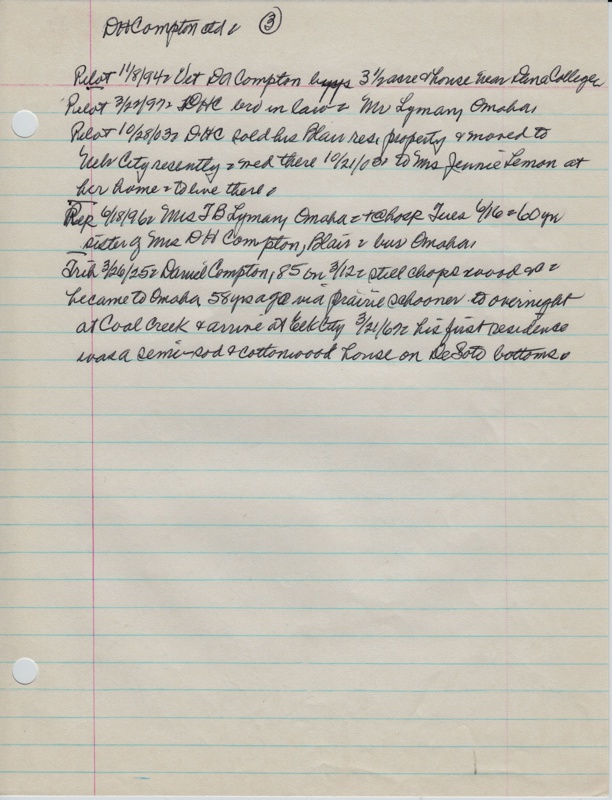 DH Compton ctd. (3)
Pilot 11/8/94. Vet DH Compton buys 3 1/2 acre & house near Dana College.
Pilot 3/22/97. DHC bro in law. Mr Lyman, Omaha.
Pilot 10/28/03. DHC sold his Blair resi property & moved to
City resently. wed there 10/21/03. to Mrs Jennie Lemon at
her home. to live there.
Rep 6/18/96. Mrs TB Lyman, Omaha. + @ hosp Tues 6/16. 60 yr
sister of Mrs DH Compton, Blair. bur Omaha.
Trib 3/26/25. Daniel Compton, 85 on 3/12. still chops wood
he came to Omaha 58 yrs ago via prairie schooner to overnight
at Coal Creek & arrive at Eelk City 3/21/67. his first residense
was a semi-sod & cottonwood house on DeSoto bottoms.